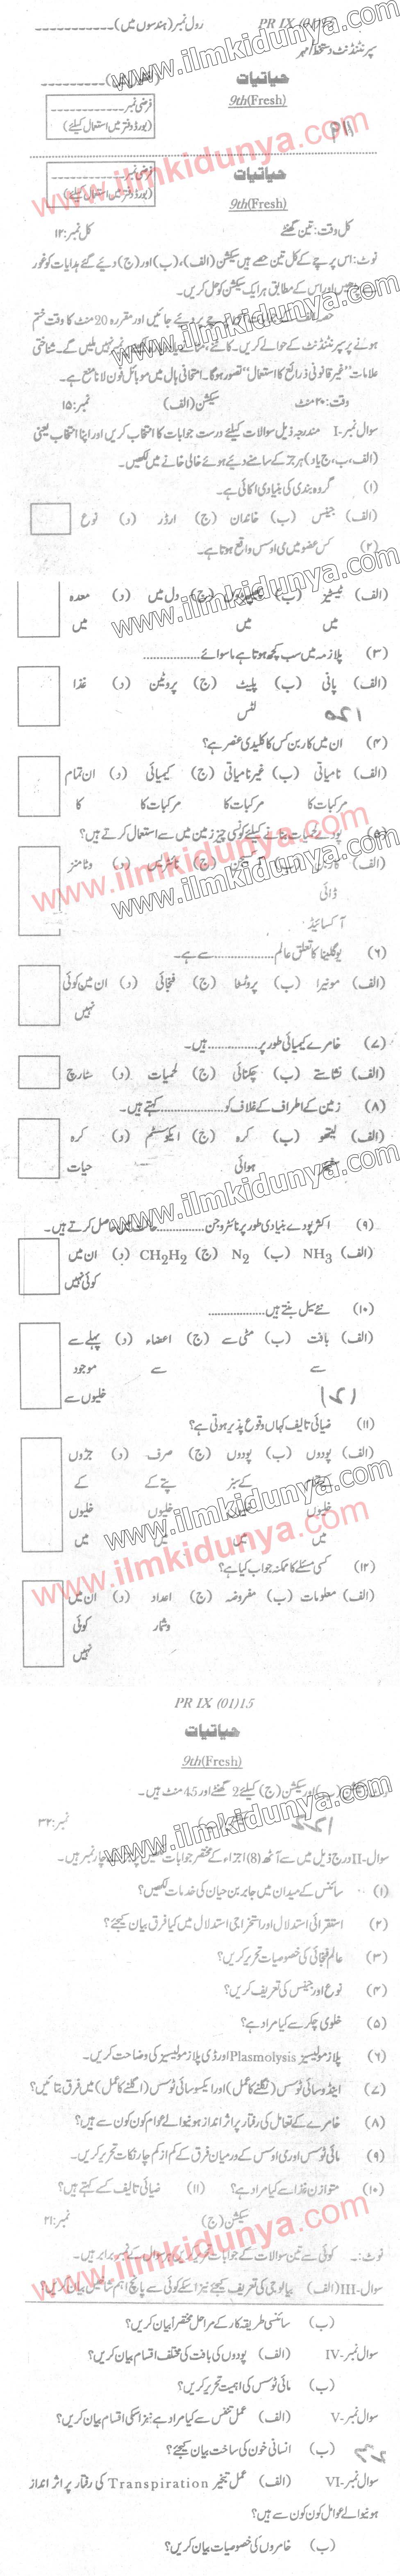 PR IX (01)15
رول نمبر (ہندسوں میں) -----------
سپرنٹنڈنٹ دستخط/مہر
حیاتیات
9th(Fresh)
فرضی نمبر
(بورڈ دفتر میں استعمال کیلئے)
www.ilmkidunya.com
حیاتیات
فرضی نمبر
9th(Fresh)
کل وقت: تین گھنٹے
کل نمبر: ۱۲
نوٹ: اس پرچے کے کل تین حصے ہیں سیکشن (الف)، (ب) اور (ج) دیئے گئے ہدایات کو غور
اور اس کے مطابق ہر ایک سیکشن کو حل کریں۔
پرچے پر دیئے جائیں اور مقررہ 20 منٹ کا وقت ختم
ہونے پر سپرنٹنڈنٹ کے حوالے کریں۔ نمبر نہیں ملیں گے۔ شناختی
علامات "غیر قانونی ذرائع کا استعمال" تصور ہوگا۔ امتحانی ہال میں موبائل فون لانا منع ہے۔
وقت: ۲۰ منٹ سیکشن (الف) نمبر: ۱۵
سوال نمبر-I مندرجہ ذیل سوالات کیلئے درست جوابات کا انتخاب کریں اور اپنا انتخاب یعنی
(الف، ب، ج یا د) ہر جز کے سامنے دیئے ہوئے خالی خانے میں لکھیں۔
(۱) گروہ بندی کی بنیادی اکائی ہے۔
(الف) جینس (ب) خاندان (ج) آرڈر (د) نوع
(۲) کس عضو میں می اوسس واقع ہوتا ہے۔
(الف) ٹیسٹیز (ب) (ج) دل میں (د) معدہ
میں میں میں
(۳) پلازمہ میں سب کچھ ہوتا ہے ماسوائے ................
(الف) پانی (ب) پلیٹ (ج) پروٹین (د) غذا
لٹس
(۴) ان میں کاربن کس کا کلیدی عنصر ہے؟
(الف) نامیاتی (ب) غیر نامیاتی (ج) کیمیائی (د) ان تمام
مرکبات کا مرکبات کا مرکبات کا کا
(۵) پودے لحمیات بنانے کیلئے کونسی چیز زمین میں سے استعمال کرتے ہیں؟
(الف) کاربن (ب) (ج) نائٹریٹس (د) وٹامنز
ڈائی
آکسائیڈ
(۶) یوگلینا کا تعلق عالم ................ سے ہے۔
(الف) مونیرا (ب) پروٹسٹا (ج) فنجائی (د) ان میں کوئی
نہیں
(۷) خامرے کیمیائی طور پر ................ ہیں۔
(الف) نشاستے (ب) چکنائی (ج) لحمیات (د) سٹارچ
(۸) زمین کے اطراف کے غلاف کو ................ کہتے ہیں۔
(الف) لیتھو (ب) کرہ (ج) ایکوسسٹم (د) کرہ
سفیئر ہوائی حیات
(۹) اکثر پودے بنیادی طور پر نائٹروجن ................ حالت میں حاصل کرتے ہیں۔
(الف) NH3 (ب) N2 (ج) CH2H2 (د) ان میں
کوئی نہیں
(۱۰) نئے سیل بنتے ہیں ................
(الف) بافت (ب) مٹی سے (ج) اعضاء (د) پہلے سے
سے سے موجود
خلیوں سے
(۱۱) ضیائی تالیف کہاں وقوع پذیر ہوتی ہے؟
(الف) پودوں (ب) پودوں (ج) صرف (د) جڑوں
کے تمام کے سبز پتے کے کے
خلیوں خلیوں خلیوں خلیوں
میں میں میں میں
(۱۲) کسی مسئلے کا ممکنہ جواب کیا ہے؟
(الف) معلومات (ب) مفروضہ (ج) اعداد (د) ان میں
وشمار کوئی
نہیں
PR IX (01)15
حیاتیات
9th(Fresh)
اور سیکشن (ج) کیلئے 2 گھنٹے اور 45 منٹ ہیں۔
نمبر: ۳۲
سوال-II درج ذیل میں سے آٹھ (8) اجزاء کے مختصر جوابات نمبر ہیں۔
(۱) سائنس کے میدان میں جابر بن حیان کی خدمات لکھیں؟
(۲) استقرائی استدلال اور استخراجی استدلال میں کیا فرق بیان کیجئے؟
(۳) عالم فنجائی کی خصوصیات تحریر کریں؟
(۴) نوع اور جینس کی تعریف کریں؟
(۵) خلوی چکر سے کیا مراد ہے؟
(۶) پلازمولیسیز Plasmolysis اور ڈی پلازمولیسیز کی وضاحت کریں۔
(۷) اینڈوسائی ٹوسس (نگلنے کا عمل) اور ایکسوسائی ٹوسس (اگلنے کا عمل) میں فرق بتائیں؟
(۸) خامرے کے تعامل کی رفتار پر اثر انداز ہونے والے عوامل کون کون سے ہیں؟
(۹) مائی ٹوسس اور می اوسس کے درمیان فرق کے کم از کم چار نکات تحریر کریں۔
(۱۰) متوازن غذا سے کیا مراد ہے؟ (۱۱) ضیائی تالیف کسے کہتے ہیں؟
سیکشن (ج) نمبر: ۲۱
نوٹ:۔ کوئی سے تین سوالات کے جوابات تحریر کریں ہر سوال کے نمبر برابر ہیں۔
سوال-III (الف) بیالوجی کی تعریف کیجئے نیز اسکے کوئی سے پانچ اہم شاخیں بیان کریں؟
(ب) سائنسی طریقہ کار کے مراحل مختصراً بیان کریں؟
سوال نمبر-IV (الف) پودوں کی بافت کی مختلف اقسام بیان کریں؟
(ب) مائی ٹوسس کی اہمیت تحریر کریں؟
سوال نمبر-V (الف) عمل تنفس سے کیا مراد ہے نیز اسکی اقسام بیان کریں؟
(ب) انسانی خون کی ساخت بیان کیجئے؟
سوال نمبر-VI (الف) عمل تبخیر Transpiration کی رفتار پر اثر انداز
ہونے والے عوامل کون کون سے ہیں؟
(ب) خامروں کی خصوصیات بیان کریں؟